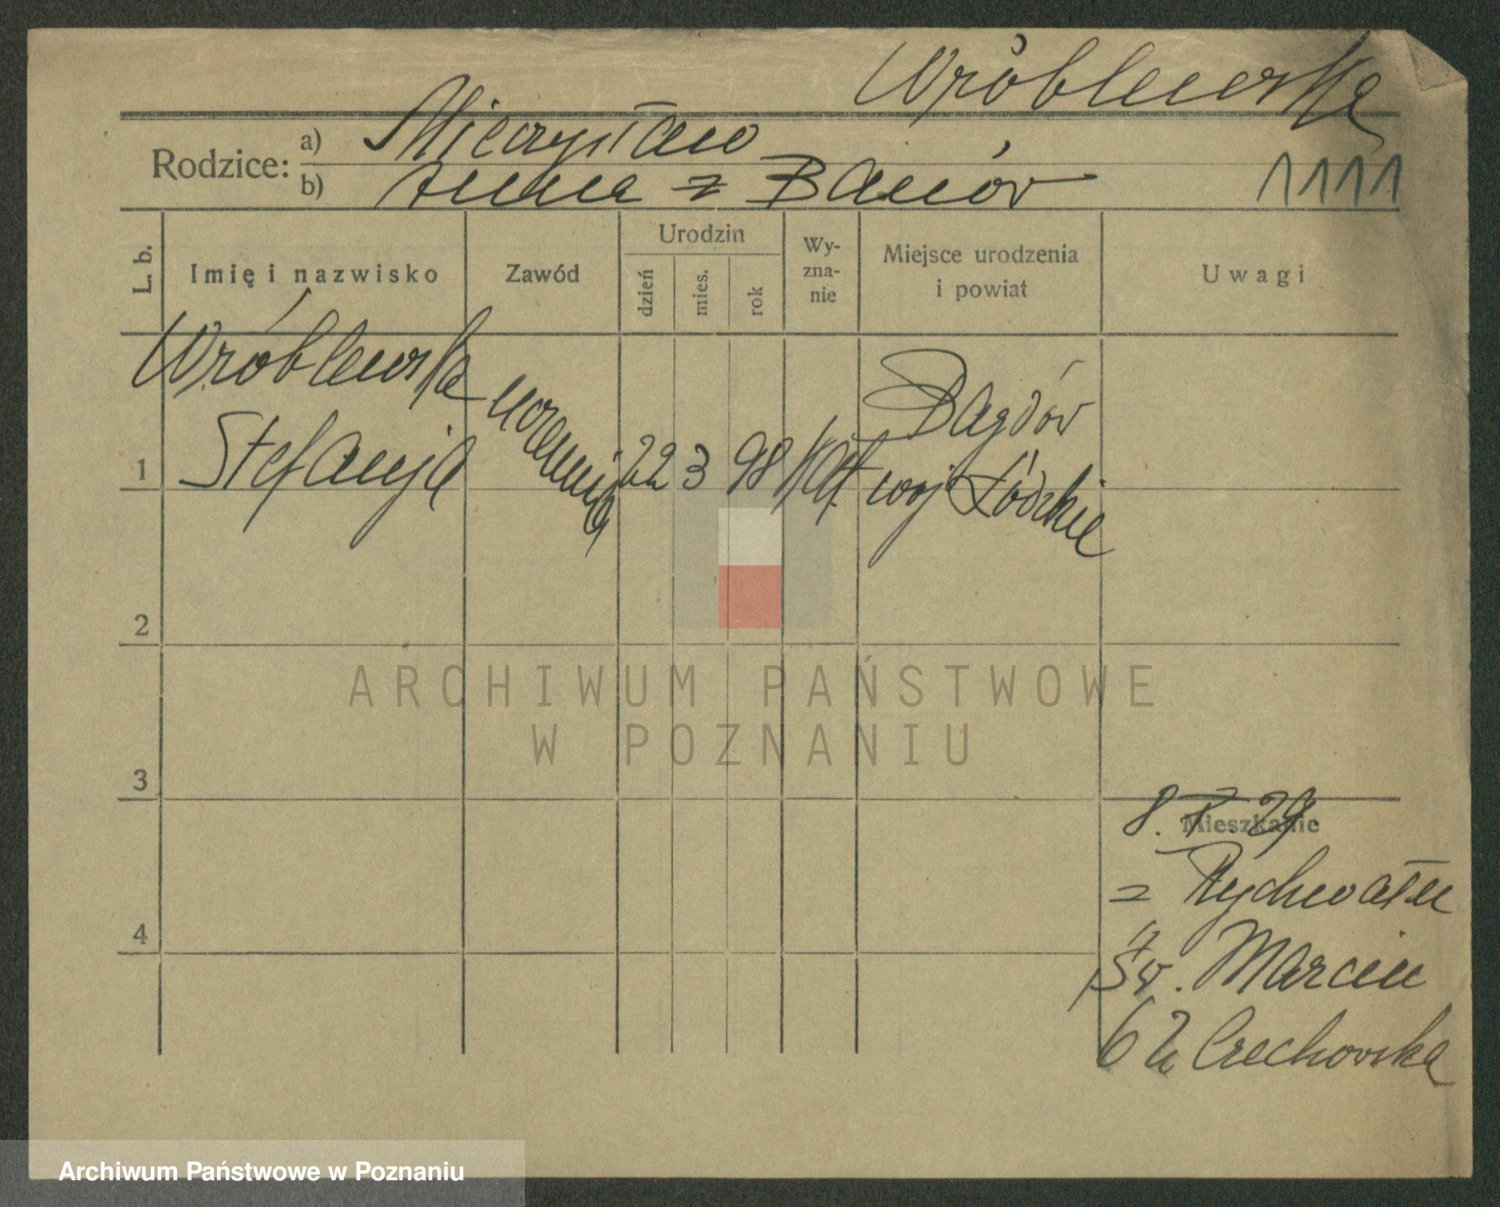 Wróblewska
Rodzice: a) Mieczysław
b) Anna z Baniów
1111
L. b.
Imię i nazwisko
Zawód
Urodzin
dzień
mies.
rok
Wy-
zna-
nie
Miejsce urodzenia
i powiat
Uwagi
Wróblewska
Stefanja
uczennica
22 3 98 kat.
Bagdów
woj Łódzkie
1
2
3
4
Mieszkanie
8. 29
z Rychwału
Św. Marcin
62 Czechowska
ARCHIWUM PAŃSTWOWE
W POZNANIU
Archiwum Państwowe w Poznaniu